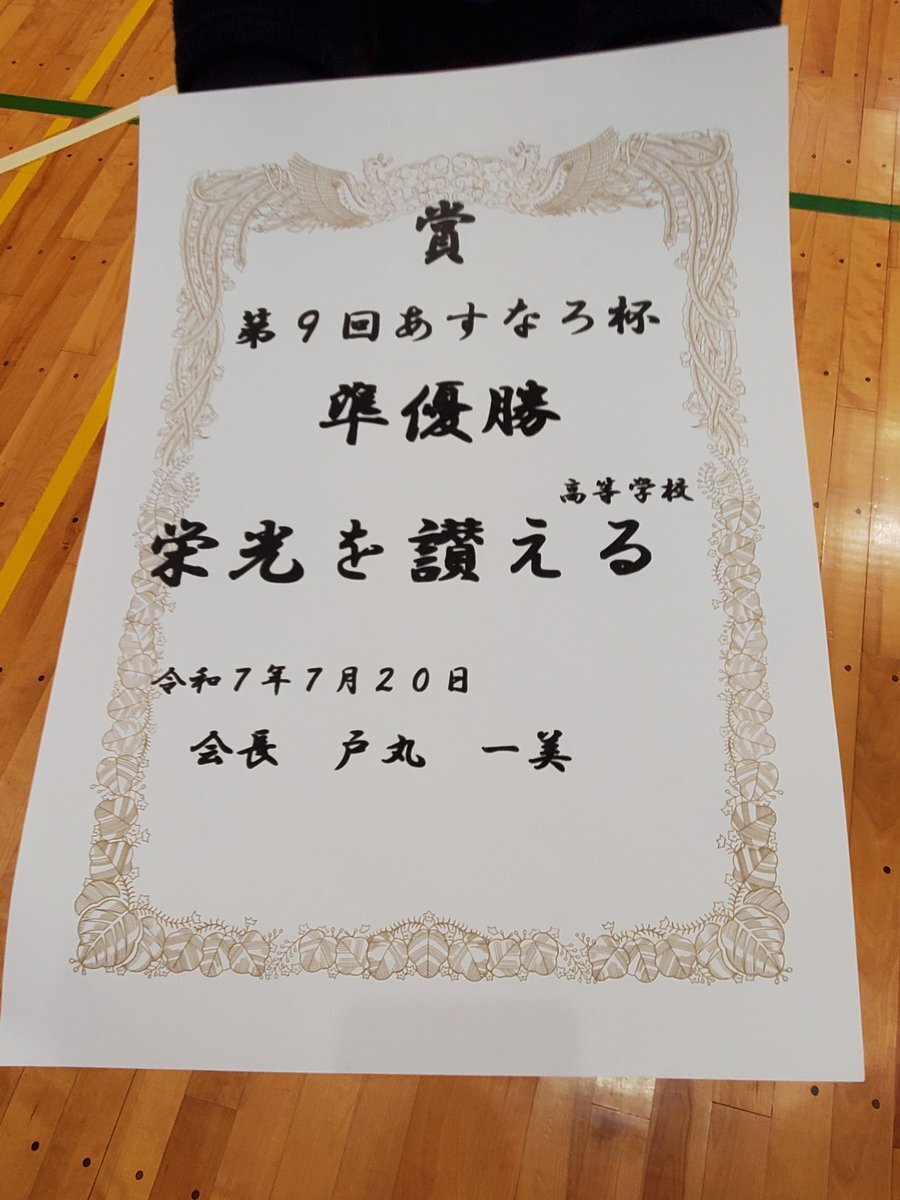 賞
第９回あすなろ杯
準優勝
高等学校
栄光を讃える
令和７年７月２０日
会長　戸丸　一美